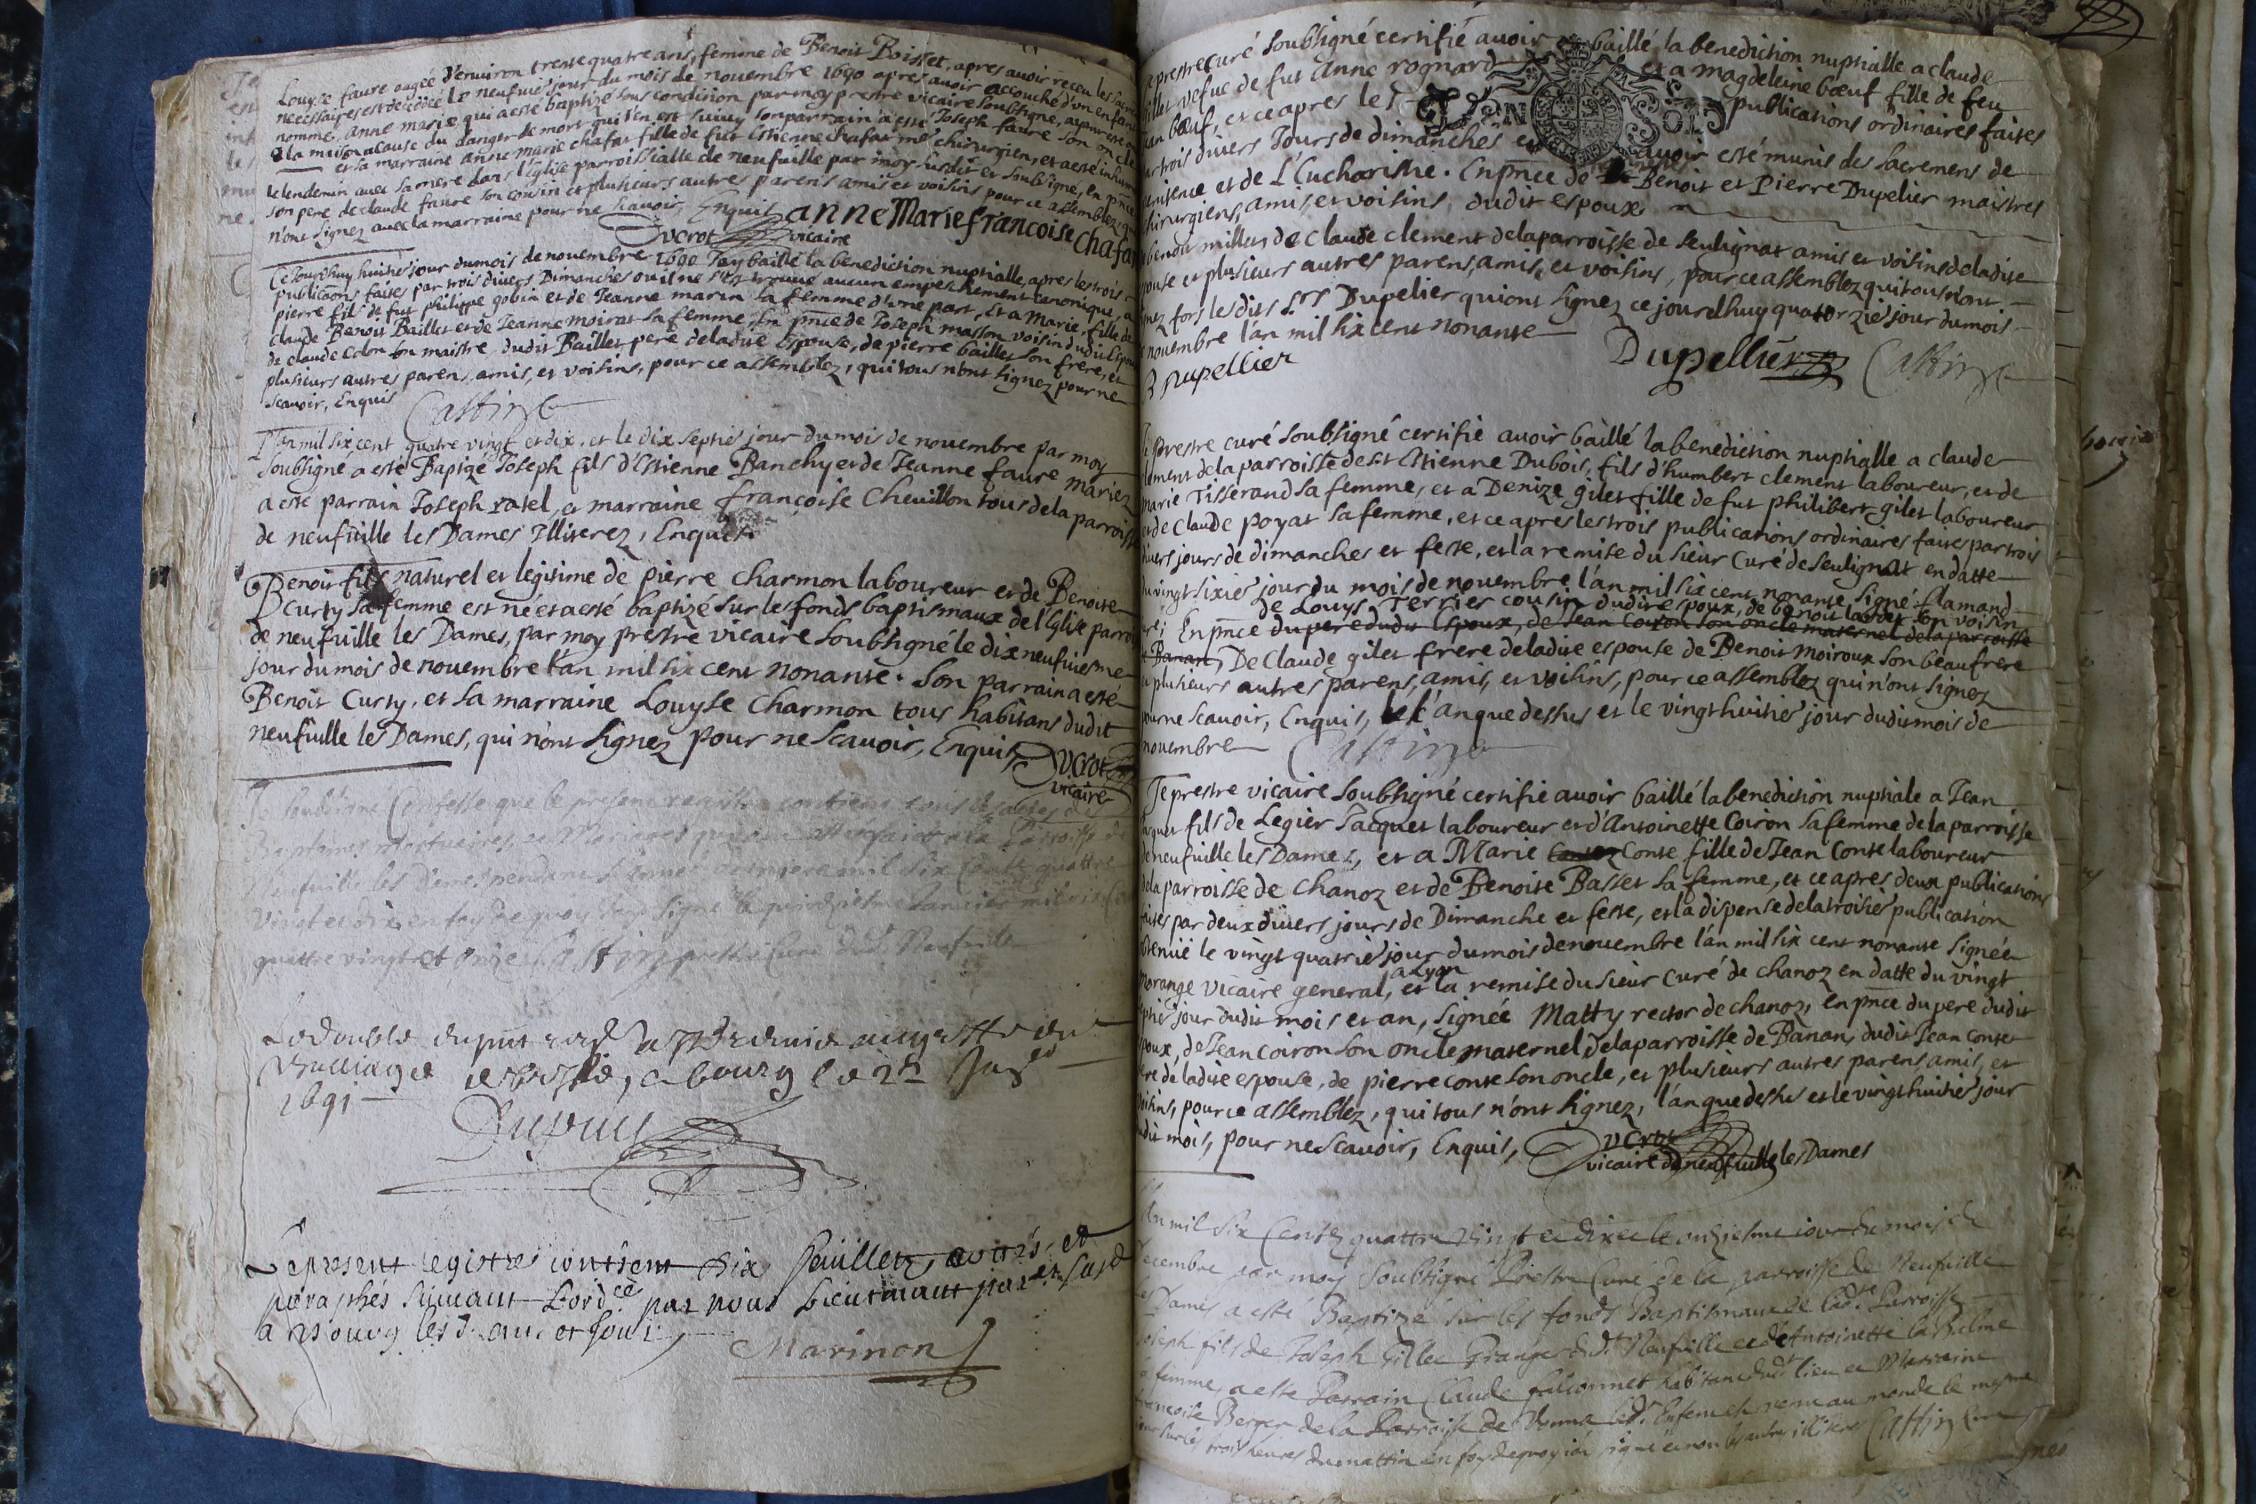 Louyse faure aagée d'environ trente quatre ans, femme de Benoit Boisset, apres avoir receu les sacre
necessaires est decedée le neufuie jour du mois de novembre 1690 apres auoir accouché d'un enfan
nommé anne marie qui a esté baptizé sous condition par moy prestre vicaire soubsigné, au
a la maison a cause du danger de mort qui s'en est suiuy son parrain a esté Joseph faure son oncle
et sa marraine anne marie chafar fille de fut Estienne chafar me chirurgien, et a esté inhum
le lendemin auec sa mere dans l'Eglise parroissialle de neufuille par moy susdit et soubsigné, en pnce
son pere de claude faure son cousin et plusieurs autres parens amis et voisins pour ce assemblez qui
n'ont signez auec la marraine pour ne scauoir, Enquis anne Marie francoise chafar
Ducrot vicaire
Ce Jourdhuy huitie jour du mois de novembre 1690 Jay baillé la benediction nuptialle, apres les trois
publicaons faites par trois divers Dimanches ou il ne s'est trouué aucun empeschement canonique, a
pierre fils de fut philippe gobin et de Jeanne marin sa femme d'une part, Et a Marie, fille de
claude Benoit Baillet et de Jeanne moirat sa femme, En pnce de Joseph masson voisin dudit Epoux
de claude colon son maistre dudit Baillet pere de ladite Espouse, de pierre baillet son frere, et
plusieurs autres parens amis, et voisins, pour ce assemblez, qui tous n'ont signez pour ne
scauoir, Enquis Castin
L'an mil six cent quatre vingt et dix, et le dix septie jour du mois de novembre par moy
soubsigné a esté Baptizé Joseph fils d'Estienne Banchy et de Jeanne faure mariez
a esté parrain Joseph ratel, et marraine françoise Cheuillon tous de la parroisse
de neufuille les Dames Illiterez, Enquis
Benoit fils naturel et legitime de pierre charmon laboureur et de Benoite
Curty sa femme est né et a esté baptizé sur les fonds baptismaux de l'Eglise parro
de neufuille les Dames, par moy prestre vicaire soubsigné le dix neufuiesme
jour du mois de novembre l'an mil six cent nonante. Son parrain a esté
Benoit Curty, et sa marraine Louyse Charmon tous habitans dudit
neufuille les Dames, qui n'ont signez pour ne scauoir, Enquis Ducrot
vicaire
Je soubsigné Confesse que le present registre contient tous les actes de
Baptemes Mortuaires, et Mariages la Parroisse de
Neufuille les Dames pendant l'année derniere mil six Cents quattre
vingt et dix, en foy de quoy Jay signé le quinziesme Januier mil six Cent
quattre vingt et onze Castin prestre Curé de Neufuille
Le double du pnt a esté remis au greffe du
Bailliage a bourg le
1691
Dupuy
Le present registre contient dix feuilletz cottés, et
paraphés suiuant Lordce par nous Lieutenant
a Bourg les d. an et jour
Marinon
prestre curé soubsigné certifie auoir baillé la benediction nuptialle a claude
vefue de fut anne rognard et a magdeleine bœuf fille de feu
bœuf, et ce apres les publications ordinaires faites
trois divers Jours de dimanches et auoir esté munis des sacremens de
penitence et de L'Eucharistie. En pnce de Benoit et Pierre Dupelier maistres
chirurgiens, amis, et voisins dudit espoux
benoit millet de claude clement de la parroisse de seulignat amis et voisins de ladite
espouse et plusieurs autres parens, amis, et voisins, pour ce assemblez qui tous n'ont
signez fors lesdits srs Dupelier qui ont signez ce jourdhuy quatorzie jour du mois
de novembre l'an mil six cent nonante
B Dupellier Dupellier Castin
Je Prestre curé soubsigné certifie auoir baillé la benediction nuptialle a claude
clement de la parroisse de st Estienne Dubois, fils d'humbert clement laboureur, et de
marie Tisserand sa femme, et a Denize gilet fille de fut philibert gilet laboureur
et de Claude poyat sa femme, et ce apres les trois publications ordinaires faites par trois
divers jours de dimanches et feste, et la remise du sieur Curé de seulignat en datte
du vingt sixie jour du mois de novembre l'an mil six cent nonante signé flamand
de Louys Terrier cousin dudit espoux, de benoit labbet son voisin
curé; En pnce du pere dudit Espoux, de Jean Coiron son oncle maternel de la parroisse
de Banan, De Claude gilet frere de ladite espouse de Benoit moiroux son beaufrere
et plusieurs autres parens, amis, et voisins, pour ce assemblez qui n'ont signez
pour ne scauoir, Enquis, l'an que dessus et le vingt huitie jour dudit mois de
novembre Castin
Je prestre vicaire soubsigné certifie auoir baillé la benediction nuptiale a Jean
Jacquet fils de Legier Jacquet laboureur et d'Antoinette Coiron sa femme de la parroisse
de neufuille les Dames, et a Marie Conte fille de Jean Conte laboureur
de la parroisse de chanoz et de Benoite Basset sa femme, et ce apres deux publications
faites par deux divers jours de Dimanche et feste, et la dispense de la troisie publication
obtenüe le vingt quatrie jour du mois de novembre l'an mil six cent nonante signée
a Lyon
morange vicaire general, et la remise du sieur curé de chanoz en datte du vingt
septie jour dudit mois et an, signée Matty rector de chanoz, en pnce du pere dudit
espoux, de Jean Coiron son oncle maternel de la parroisse de Banan, dudit Jean Conte
pere de ladite espouse, de pierre conte son oncle, et plusieurs autres parens, amis, et
voisins, pour ce assemblez, qui tous n'ont signez, l'an que dessus et le vingt huitie jour
dudit mois, pour ne scauoir, Enquis, Ducrot
vicaire de neufuille les Dames
L'an mil six Cents quattre vingt et dix et le onziesme iour du mois de
decembre par moy soubsigné Prestre Curé de la parroisse de Neufuille
les Dames a esté Baptizé sur les fonds Baptismaux de lad.te Parroisse
Joseph fils de Joseph Gillet Granger dud.t Neufuille et d'Antoinette la
sa femme, a esté Parrain Claude falconnet habitant dud.t lieu et Marraine
francoise Berger de la Parroisse de Vonna led.t Enfant est venu au monde le mesme
iour sur les trois heures du mattin en foy de quoy iay signé et non les autres illitere Castin Curé